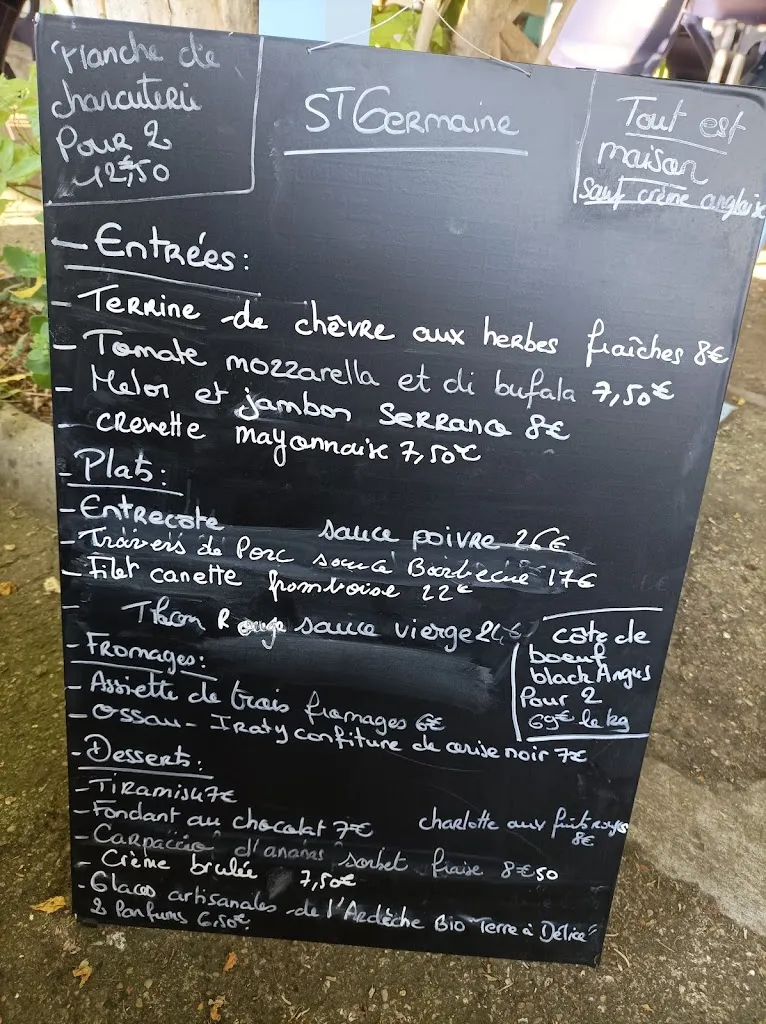 Planche de
charcuterie
Pour 2
12€,50
ST Germaine
Tout est
maison
sauf crème anglaise
- Entrées:
- Terrine de chèvre aux herbes fraîches 8€
- Tomate mozzarella et di bufala 7,50€
- Melon et jambon Serrano 8€
- crevette mayonnaise 7,50€
- Plats:
- Entrecote sauce poivre 26€
- Travers de Porc sauce Barbecue 17€
- Filet canette framboise 22€
- Thon Rouge sauce vierge 24€
côte de
boeuf
black Angus
Pour 2
69€ le kg
- Fromages:
- Assiette de trois fromages 6€
- Ossau-Iraty confiture de cerise noir 7€
- Desserts:
- Tiramisu 7€
- Fondant au chocolat 7€
charlotte aux fruits rouges
8€
- Carpaccio d'ananas sorbet fraise 8€50
- Crème brulée 7,50€
- Glaces artisanales de l'Ardèche Bio Terre à Délice"
2 Parfums 6,50€